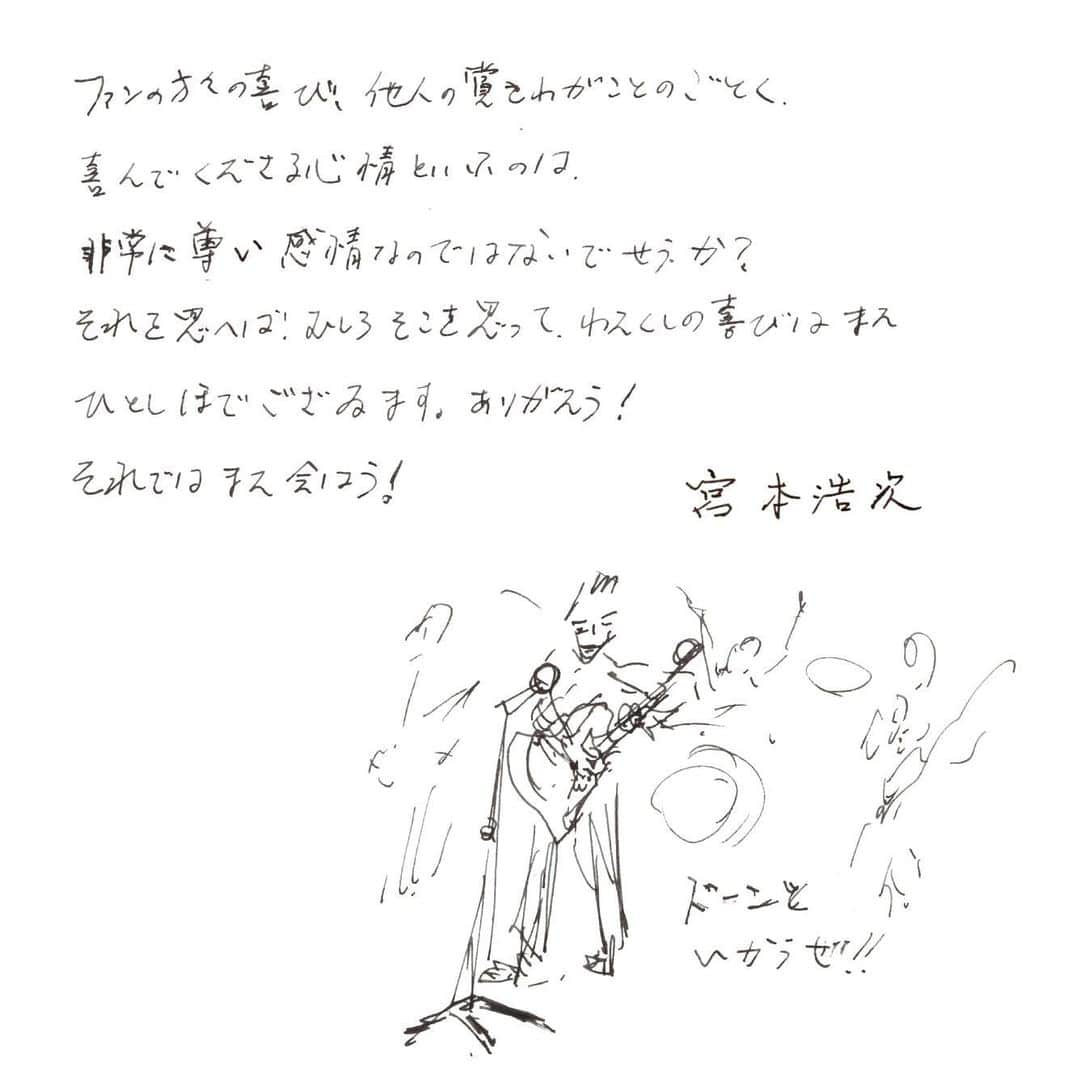 ファンの方々の喜び、他人の賞をわがことのごとく、
喜んでくださる心情といふのは、
非常に尊い感情なのではないでせうか?
それを思へば!むしろそこを思って、わたくしの喜びはまた
ひとしほでござゐます。ありがたう!
それではまた会はう!
宮本浩次
ドーンと
いかうぜ!!